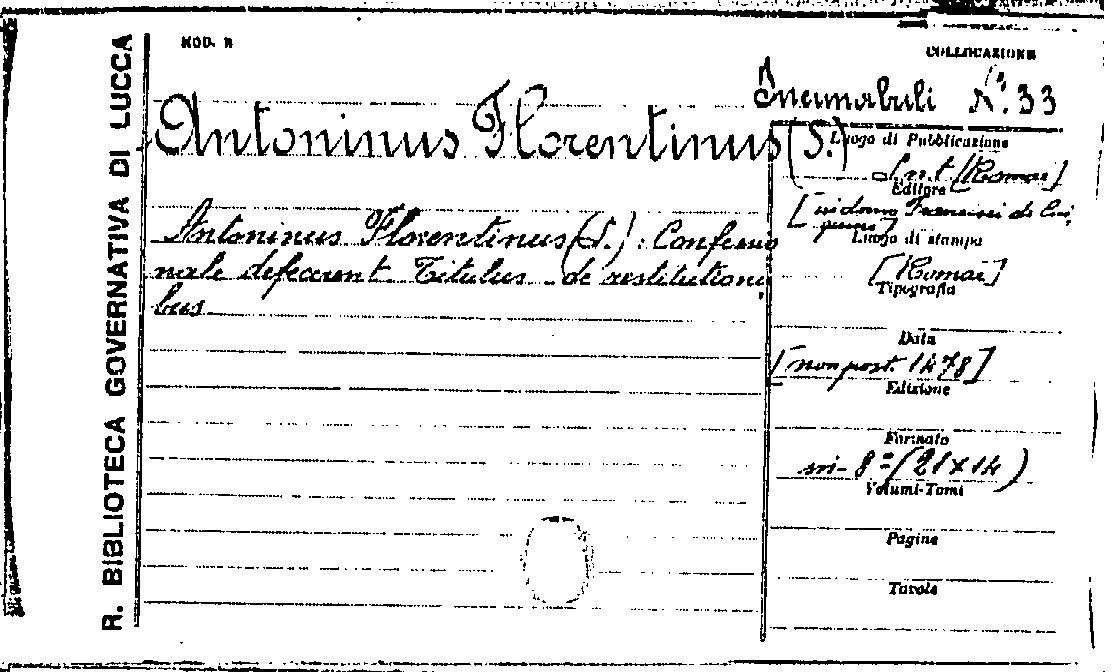 R. BIBLIOTECA GOVERNATIVA DI LUCCA
MOD. B
COLLOCAZIONE
Incunabuli N.º 33
Antoninus Florentinus (S.)
Luogo di Pubblicazione
[Romae]
Editore
Francisci de
Luogo di stampa
[Romae]
Tipografia
Antoninus Florentinus (S.): Confessio
nale defecerunt. Titulus de restitutioni
bus
Data
[non post. 1478]
Edizione
Formato
in-8º (21x14)
Volumi-Tomi
Pagine
Tavole